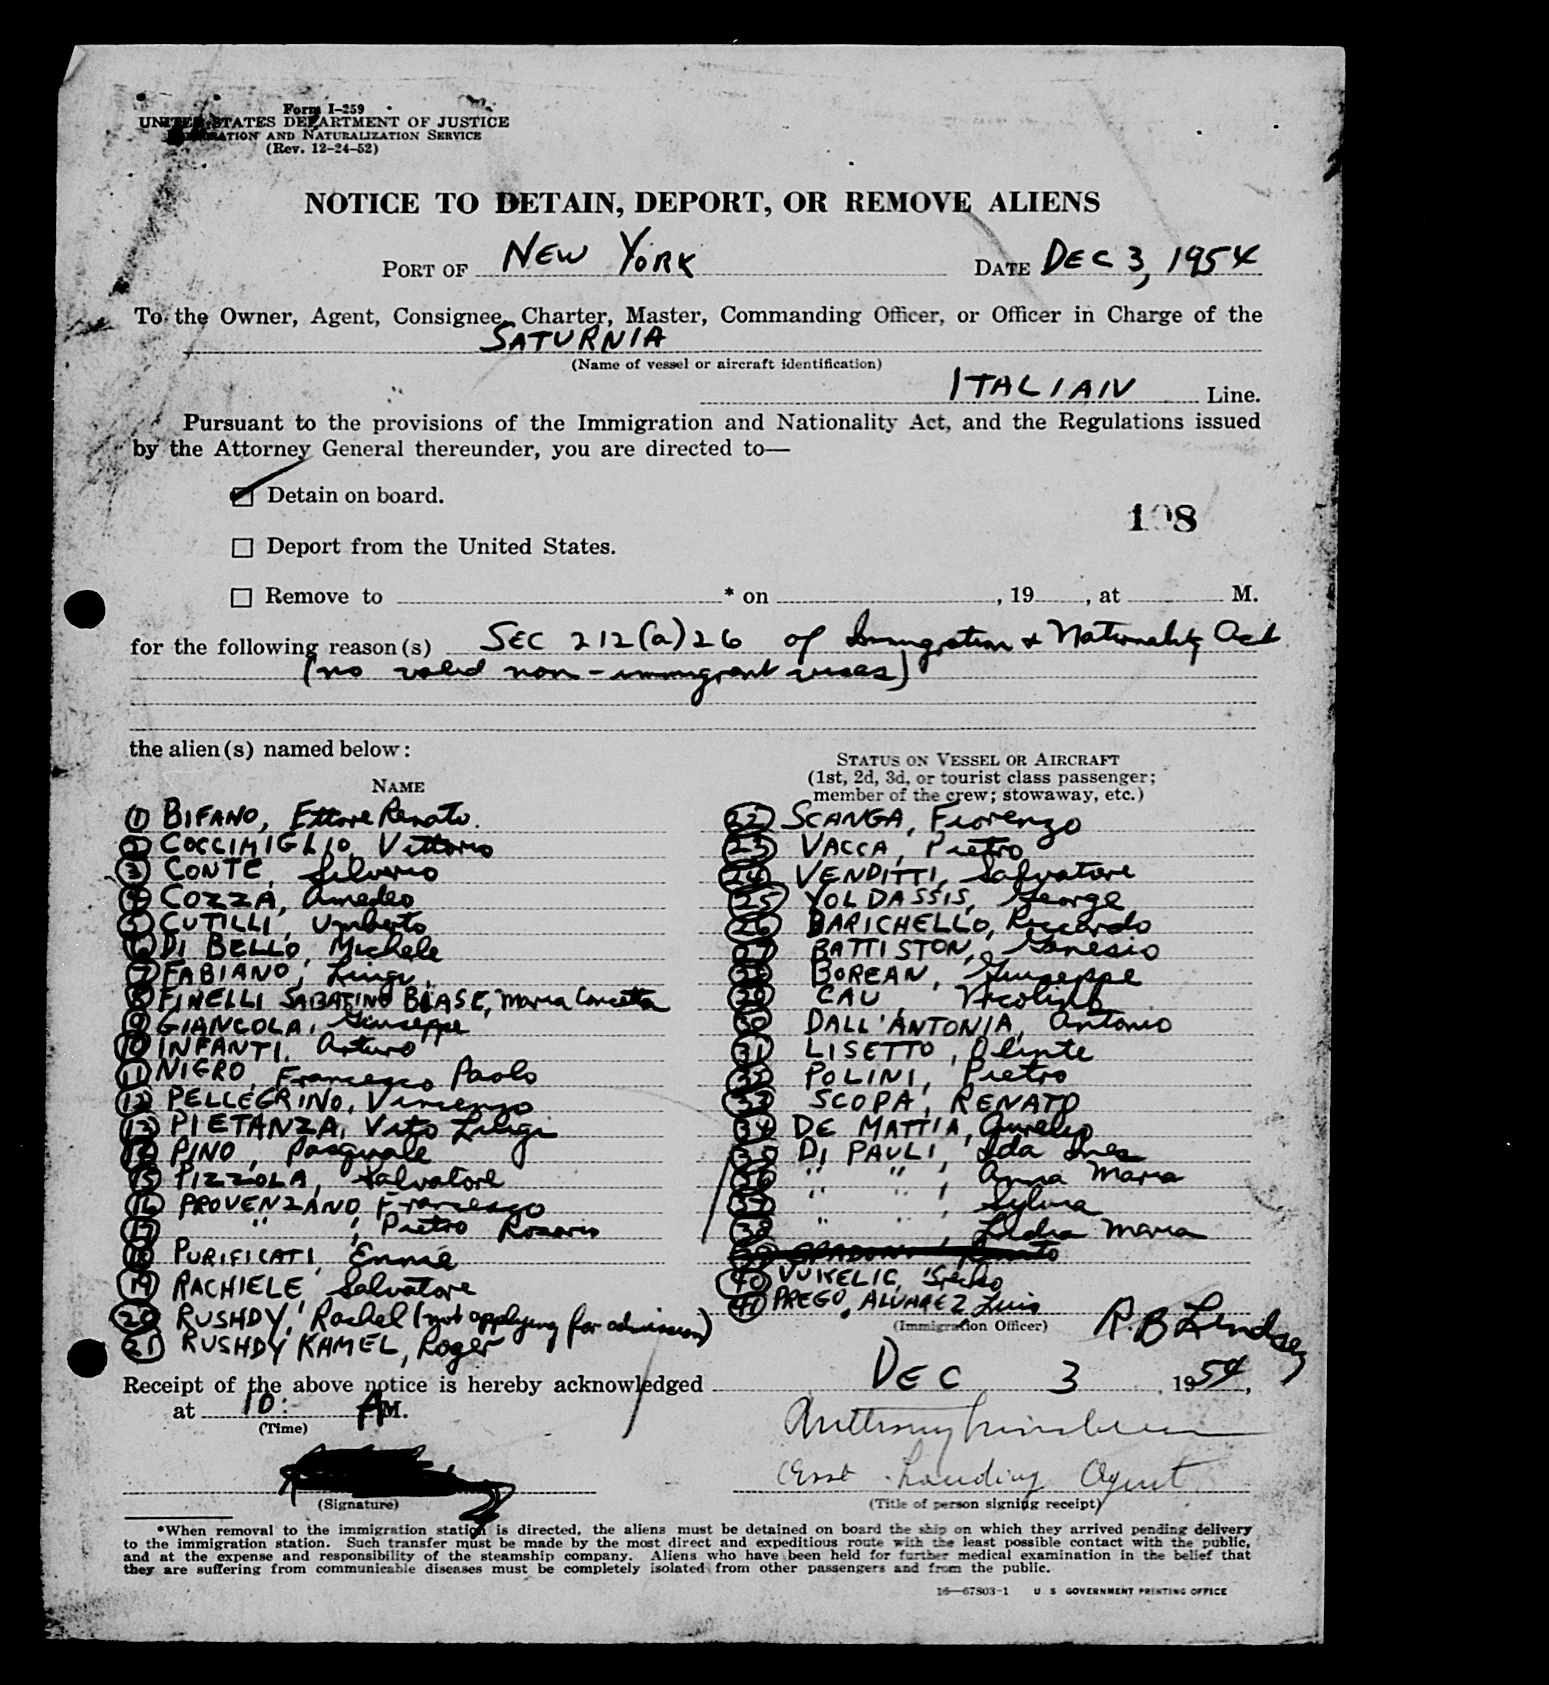 Form I-259
UNITED STATES DEPARTMENT OF JUSTICE
IMMIGRATION AND NATURALIZATION SERVICE
(Rev. 12-24-52)
NOTICE TO DETAIN, DEPORT, OR REMOVE ALIENS
PORT OF NEW YORK DATE DEC 3, 1954
To the Owner, Agent, Consignee, Charter, Master, Commanding Officer, or Officer in Charge of the
SATURNIA
(Name of vessel or aircraft identification)
ITALIAN Line.
Pursuant to the provisions of the Immigration and Nationality Act, and the Regulations issued
by the Attorney General thereunder, you are directed to—
Detain on board.
108
Deport from the United States.
Remove to * on , 19 , at M.
for the following reason(s) SEC 212(a)26 of Immigration & Nationality Act
(no valid non-immigrant visas)
the alien(s) named below:
NAME
1 BIFANO, Ettore Renato.
2 COCCIMIGLIO, Vittorio
3 CONTE, Silverio
4 COZZA, Amedeo
5 CUTILLI, Umberto
6 DI BELLO, Michele
7 FABIANO, Luigi
8 FINELLI SABATINO BIASE, Maria Concetta
9 GIANCOLA, Giuseppe
10 INFANTI, Arturo
11 NIGRO, Francesco Paolo
12 PELLEGRINO, Vincenzo
13 PIETANZA, Vito Luigi
14 PINO, Pasquale
15 PIZZOLA, Salvatore
16 PROVENZANO, Francesco
17 " , Pietro Rosario
18 PURIFICATI, Ennie
19 RACHIELE, Salvatore
20 RUSHDY, Rachel (not applying for admission)
21 RUSHDY KAMEL, Roger
STATUS ON VESSEL OR AIRCRAFT
(1st, 2d, 3d, or tourist class passenger;
member of the crew; stowaway, etc.)
22 SCANGA, Fiorenzo
23 VACCA, Pietro
24 VENDITTI, Salvatore
25 YOLDASSIS, George
26 BARICHELLO, Riccardo
27 BATTISTON, Genesio
28 BOREAN, Giuseppe
29 CAU, Nicolina
30 DALL'ANTONIA, Antonio
31 LISETTO, Olinte
32 POLINI, Pietro
33 SCOPA, RENATO
34 DE MATTIA, Aurelio
35 DI PAULI, Ida Ines
36 " " , Anna Maria
37 " " , Sylvia
38 " " , Lidia Maria
39
40 VUKELIC, Srecko
41 PREGO ALVAREZ Luis
(Immigration Officer) R.B. Lindsey
Receipt of the above notice is hereby acknowledged DEC 3 1954,
at 10: AM.
(Time)
Anthony
Asst Landing Agent
(Signature) (Title of person signing receipt)
*When removal to the immigration station is directed, the aliens must be detained on board the ship on which they arrived pending delivery
to the immigration station. Such transfer must be made by the most direct and expeditious route with the least possible contact with the public,
and at the expense and responsibility of the steamship company. Aliens who have been held for further medical examination in the belief that
they are suffering from communicable diseases must be completely isolated from other passengers and from the public.
16—67803-1 U. S. GOVERNMENT PRINTING OFFICE